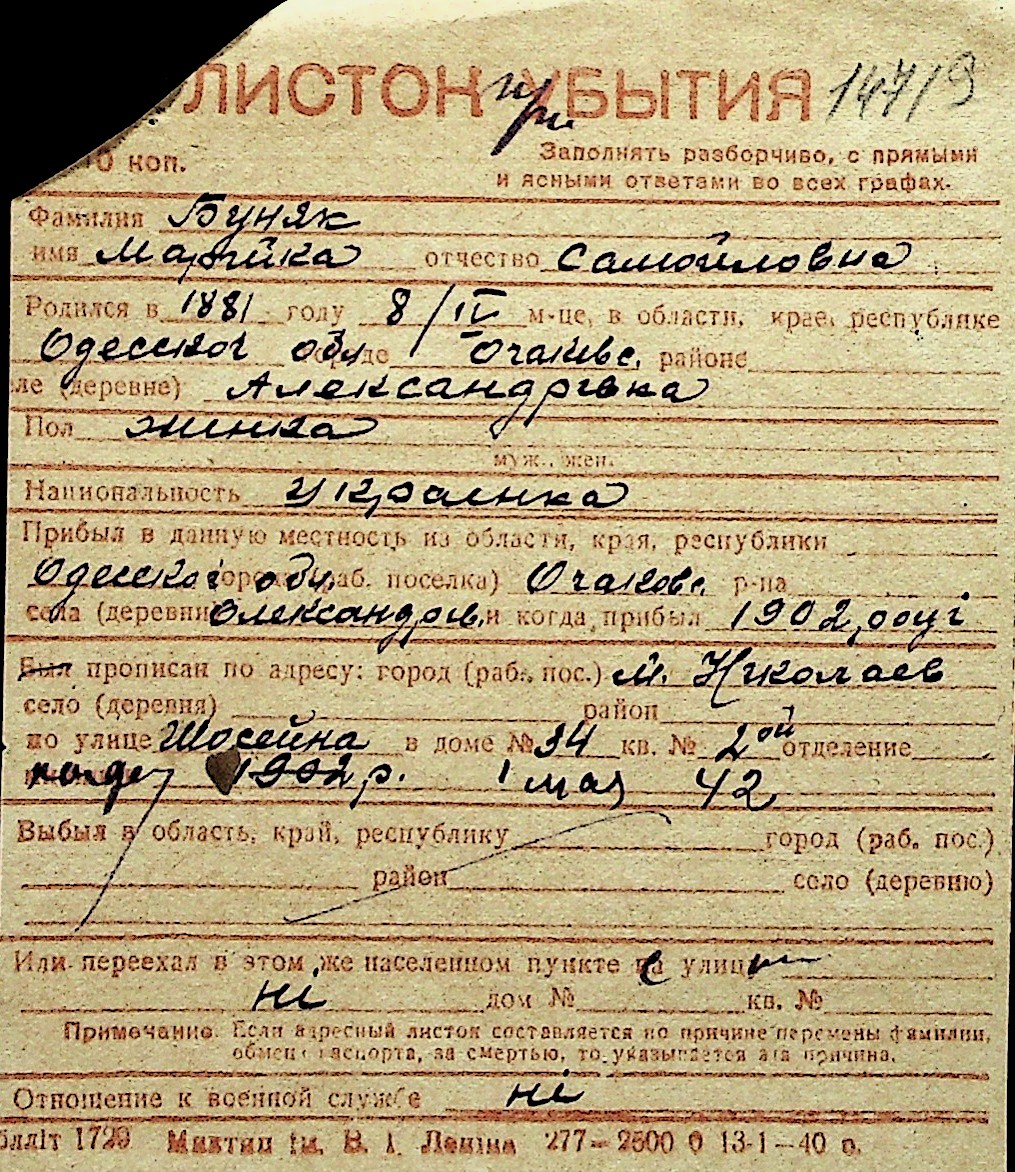 ЛИСТОК при УБЫТИЯ 147/9
10 коп. Заполнять разборчиво, с прямыми
и ясными ответами во всех графах.
Фамилия Буняк
имя Марійка отчество Самойловна
Родился в 1881 году 8/IV м-це, в области, крае, республике
Одесской обл Очаківс. районе
ле (деревне) Александрівка
Пол жинка
муж., жен.
Национальность Украинка
Прибыл в данную местность из области, края, республики
Одесской обл. (раб. поселка) Очаковс. р-на
села (деревни Олександрів. и когда прибыл 1902 році
Был прописан по адресу: город (раб. пос.) м. Николаев
село (деревня) район
по улице Шосейна в доме № 34 кв. № 2ой отделение
1902 р. 1 мая 42
Выбыл в область, край, республику город (раб. пос.)
район село (деревню)
Или переехал в этом же населенном пункте на улицу
ні дом № кв. №
Примечание. Если адресный листок составляется по причине перемены фамилии,
обмена паспорта, за смертью, то указывается эта причина.
Отношение к военной службе ні
1729 ім. В. І. Леніна 277—2500 0 13-1—40 р.